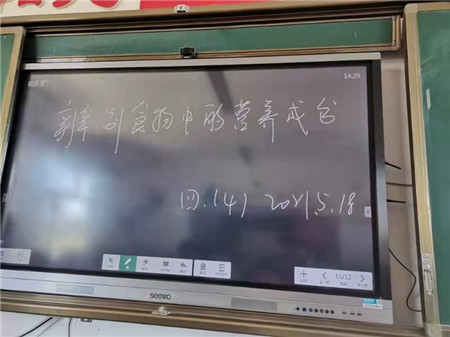 14:29
辨别食物中的营养成包
四.(4) 2021.5.18
10/12
seewo